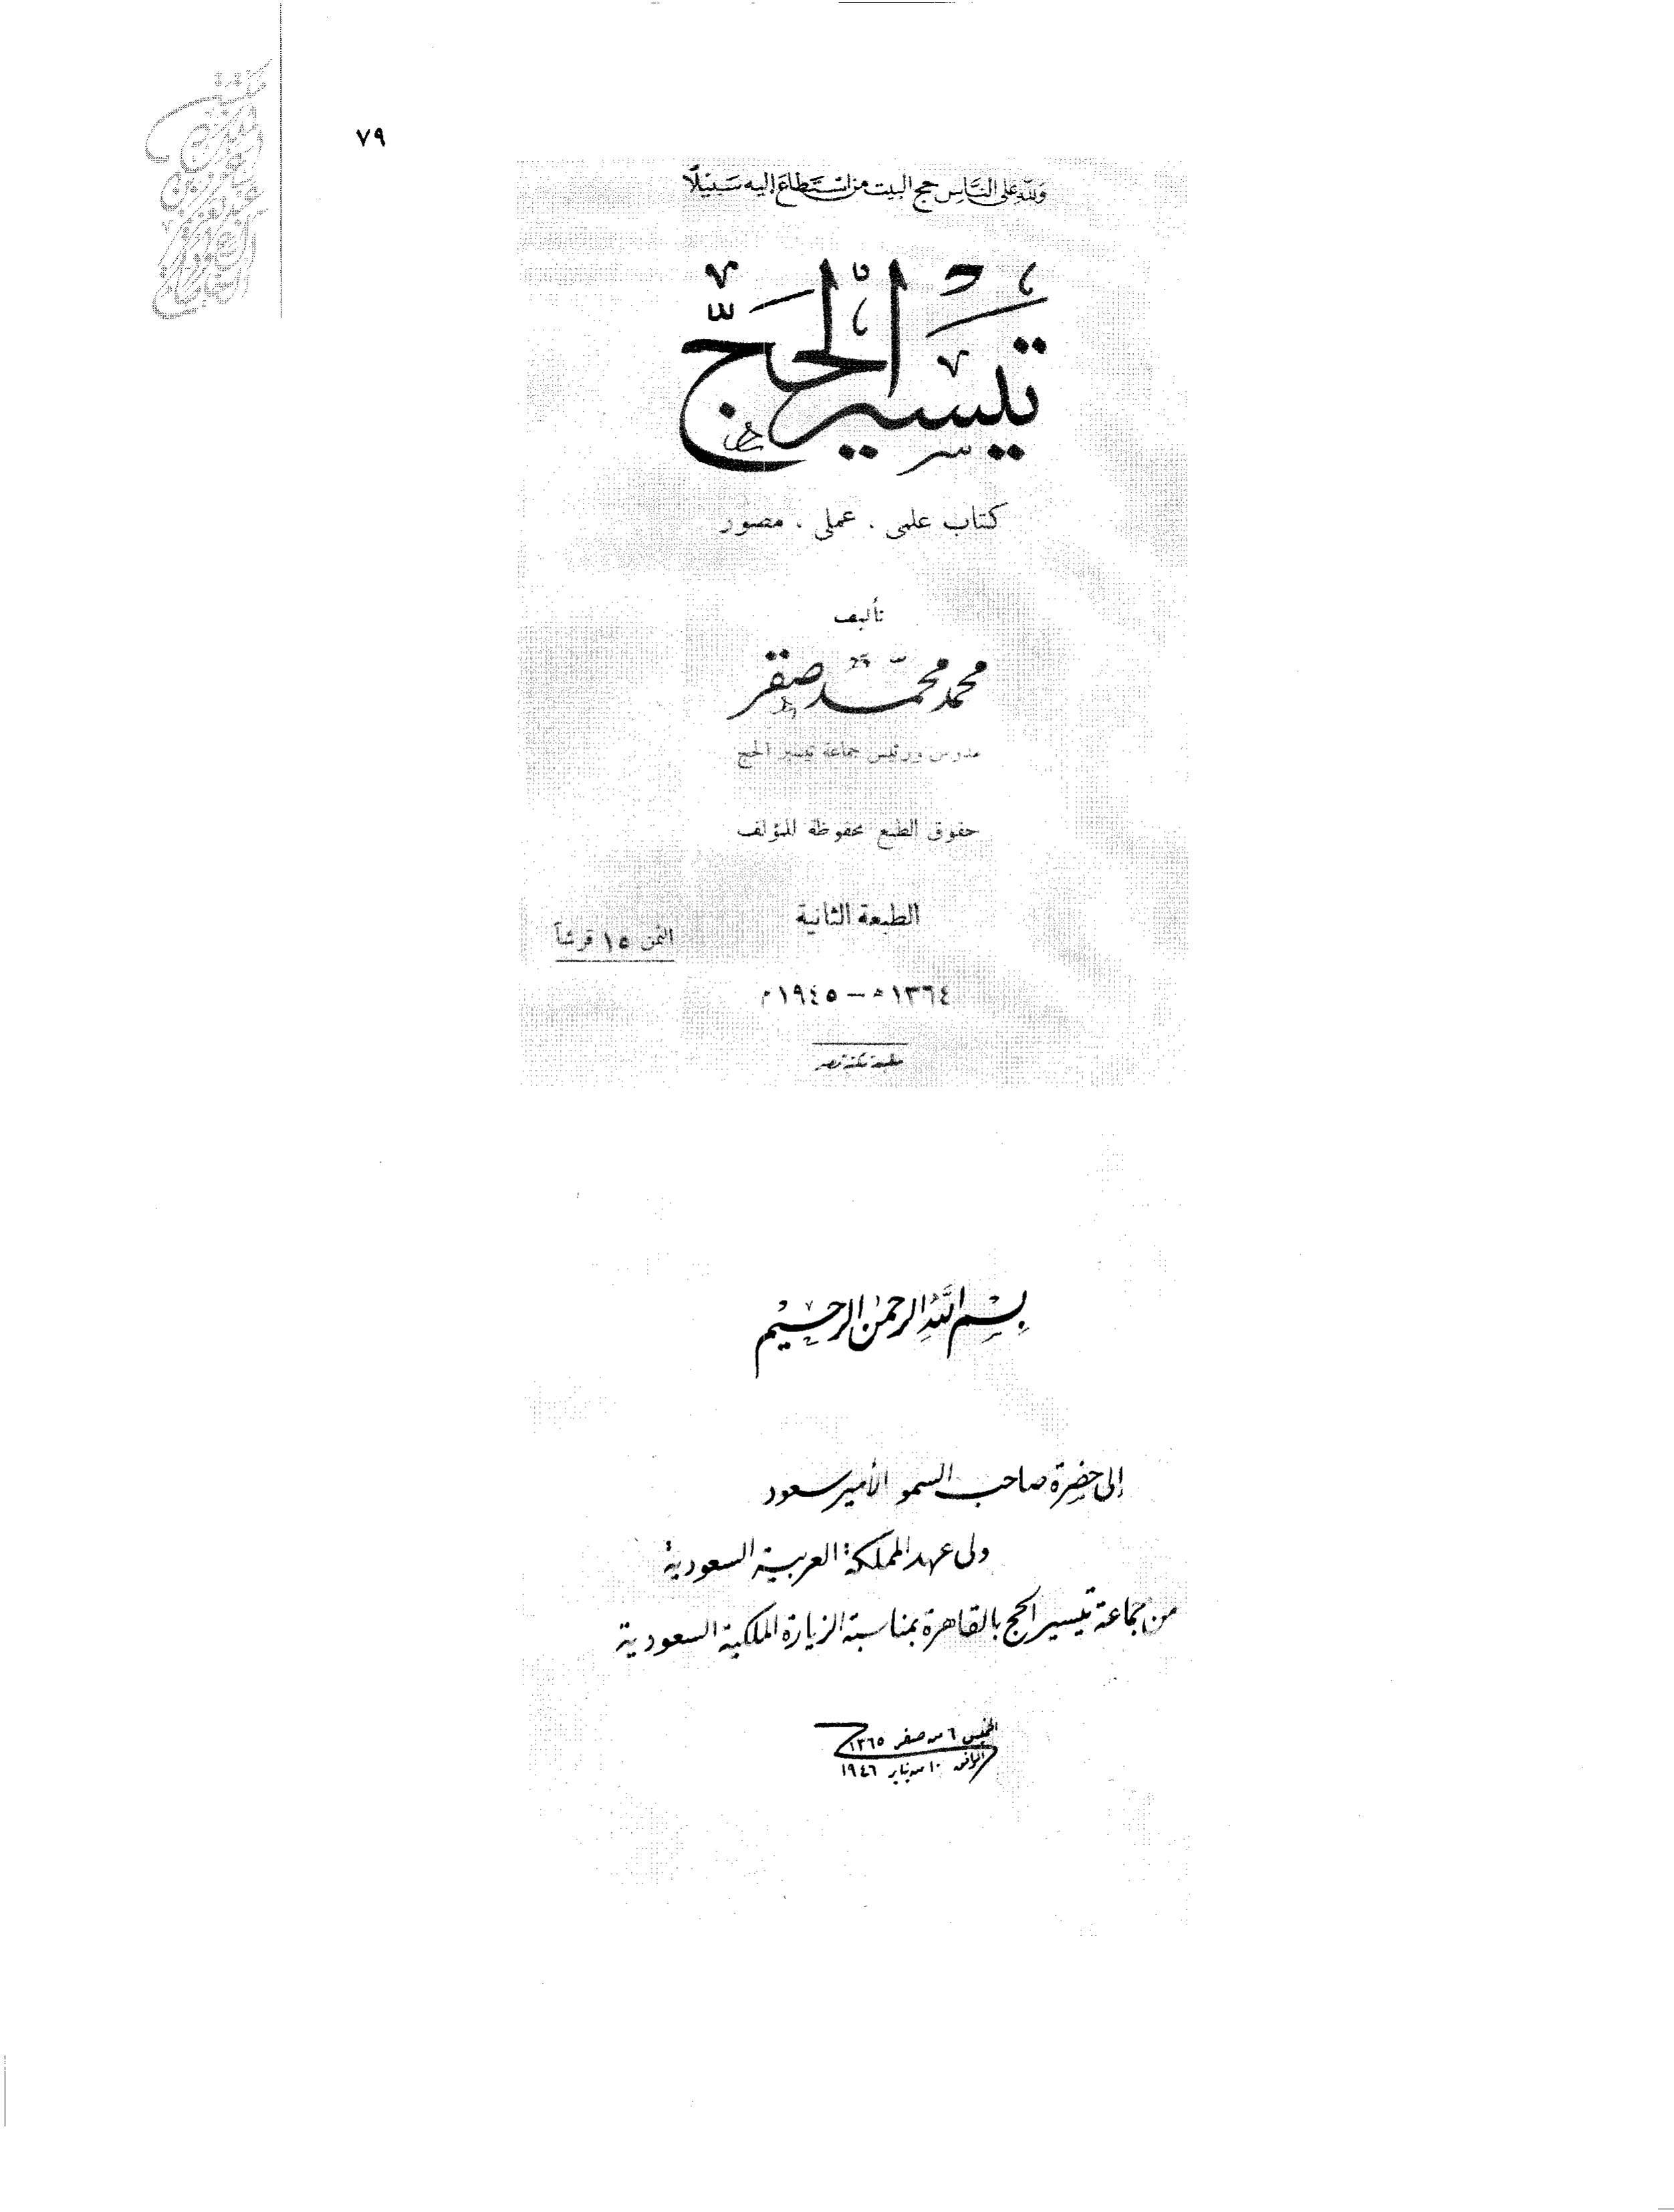 ٧٩
ولله على الناس حج البيت من استطاع إليه سبيلا
تيسير الحج
كتاب علمى . عملى . مصور
تأليف
محمد محمد صقر
مدرس ورئيس جماعة تيسير الحج
حقوق الطبع محفوظة للمؤلف
الطبعة الثانية
الثمن ١٥ قرشاً
١٣٦٤ هـ – ١٩٤٥ م
بسم الله الرحمن الرحيم
إلى حضرة صاحب السمو الأمير سعود
ولى عهد المملكة العربية السعودية
من جماعة تيسير الحج بالقاهرة بمناسبة الزيارة الملكية السعودية
الخميس ٦ من صفر ١٣٦٥
الموافق ١٠ من يناير ١٩٤٦